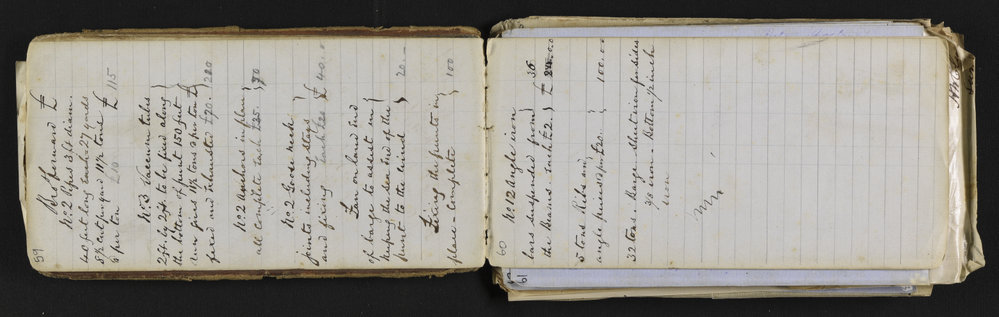 59
No 2 Pipes 3 ft diam.
feet long each = 27 yards
5½ Cwt per yard 11½ tons £ £ 115
per ton £10
No 3 Vacuum tubes
2 ft. by 2 ft. to be fixed along
the bottom of punt 150 feet
gives 11½ tons = per ton £
fixed and exhausted £20. £220
No 2 Anchors in place
all complete each £25.
No 2 Goose neck
joints including stops
and fixing each £20 £ 40.0.0
Fan on land end
of barge to assist in
keeping the sea end of the
punt to the wind 20.–
Fixing the punts in
place – complete 100
60
No 12 Angle iron
bars suspended from 36
the Beams. each £2.) £
5 tons Ribs and
angle pieces per £20. 100.0.0
32 tons. Barge – Sheet iron for sides
3/8 iron – Bottom 1/2 inch
iron
61